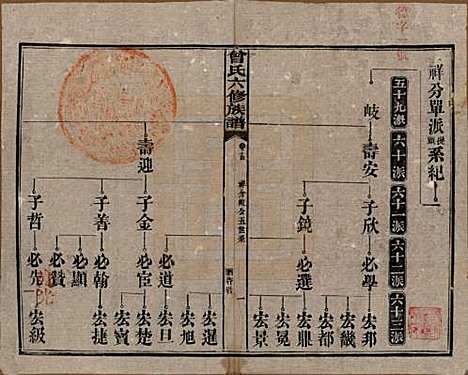 祥分單派系紀一
五十九派 六十派 六十一派 六十二派 六十三派
岐 壽安 子欣 必學 宏邦
宏畿
宏都
子鏡 必選 宏鼎
宏冕
宏景
曾氏六修族譜
壽迎 子金 必道 宏暹
宏旭
宏旦
必宦 宏楚
宏寶
子善 必翰 宏捷
必顯
必贊
子哲 必先 宏級